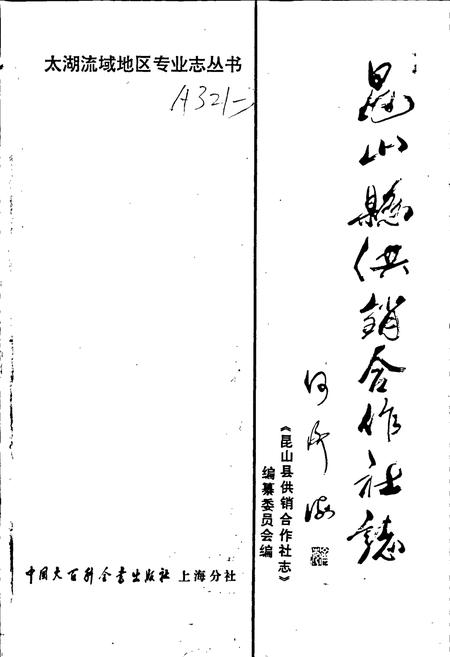 太湖流域地区专业志丛书
A321-
昆山縣供销合作社誌
《昆山县供销合作社志》
编纂委员会编
中国大百科全书出版社 上海分社